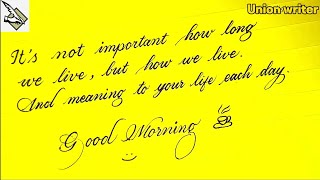 Union writer
It's not important how long
we live, but how we live.
And meaning to your life each day.
Good Morning